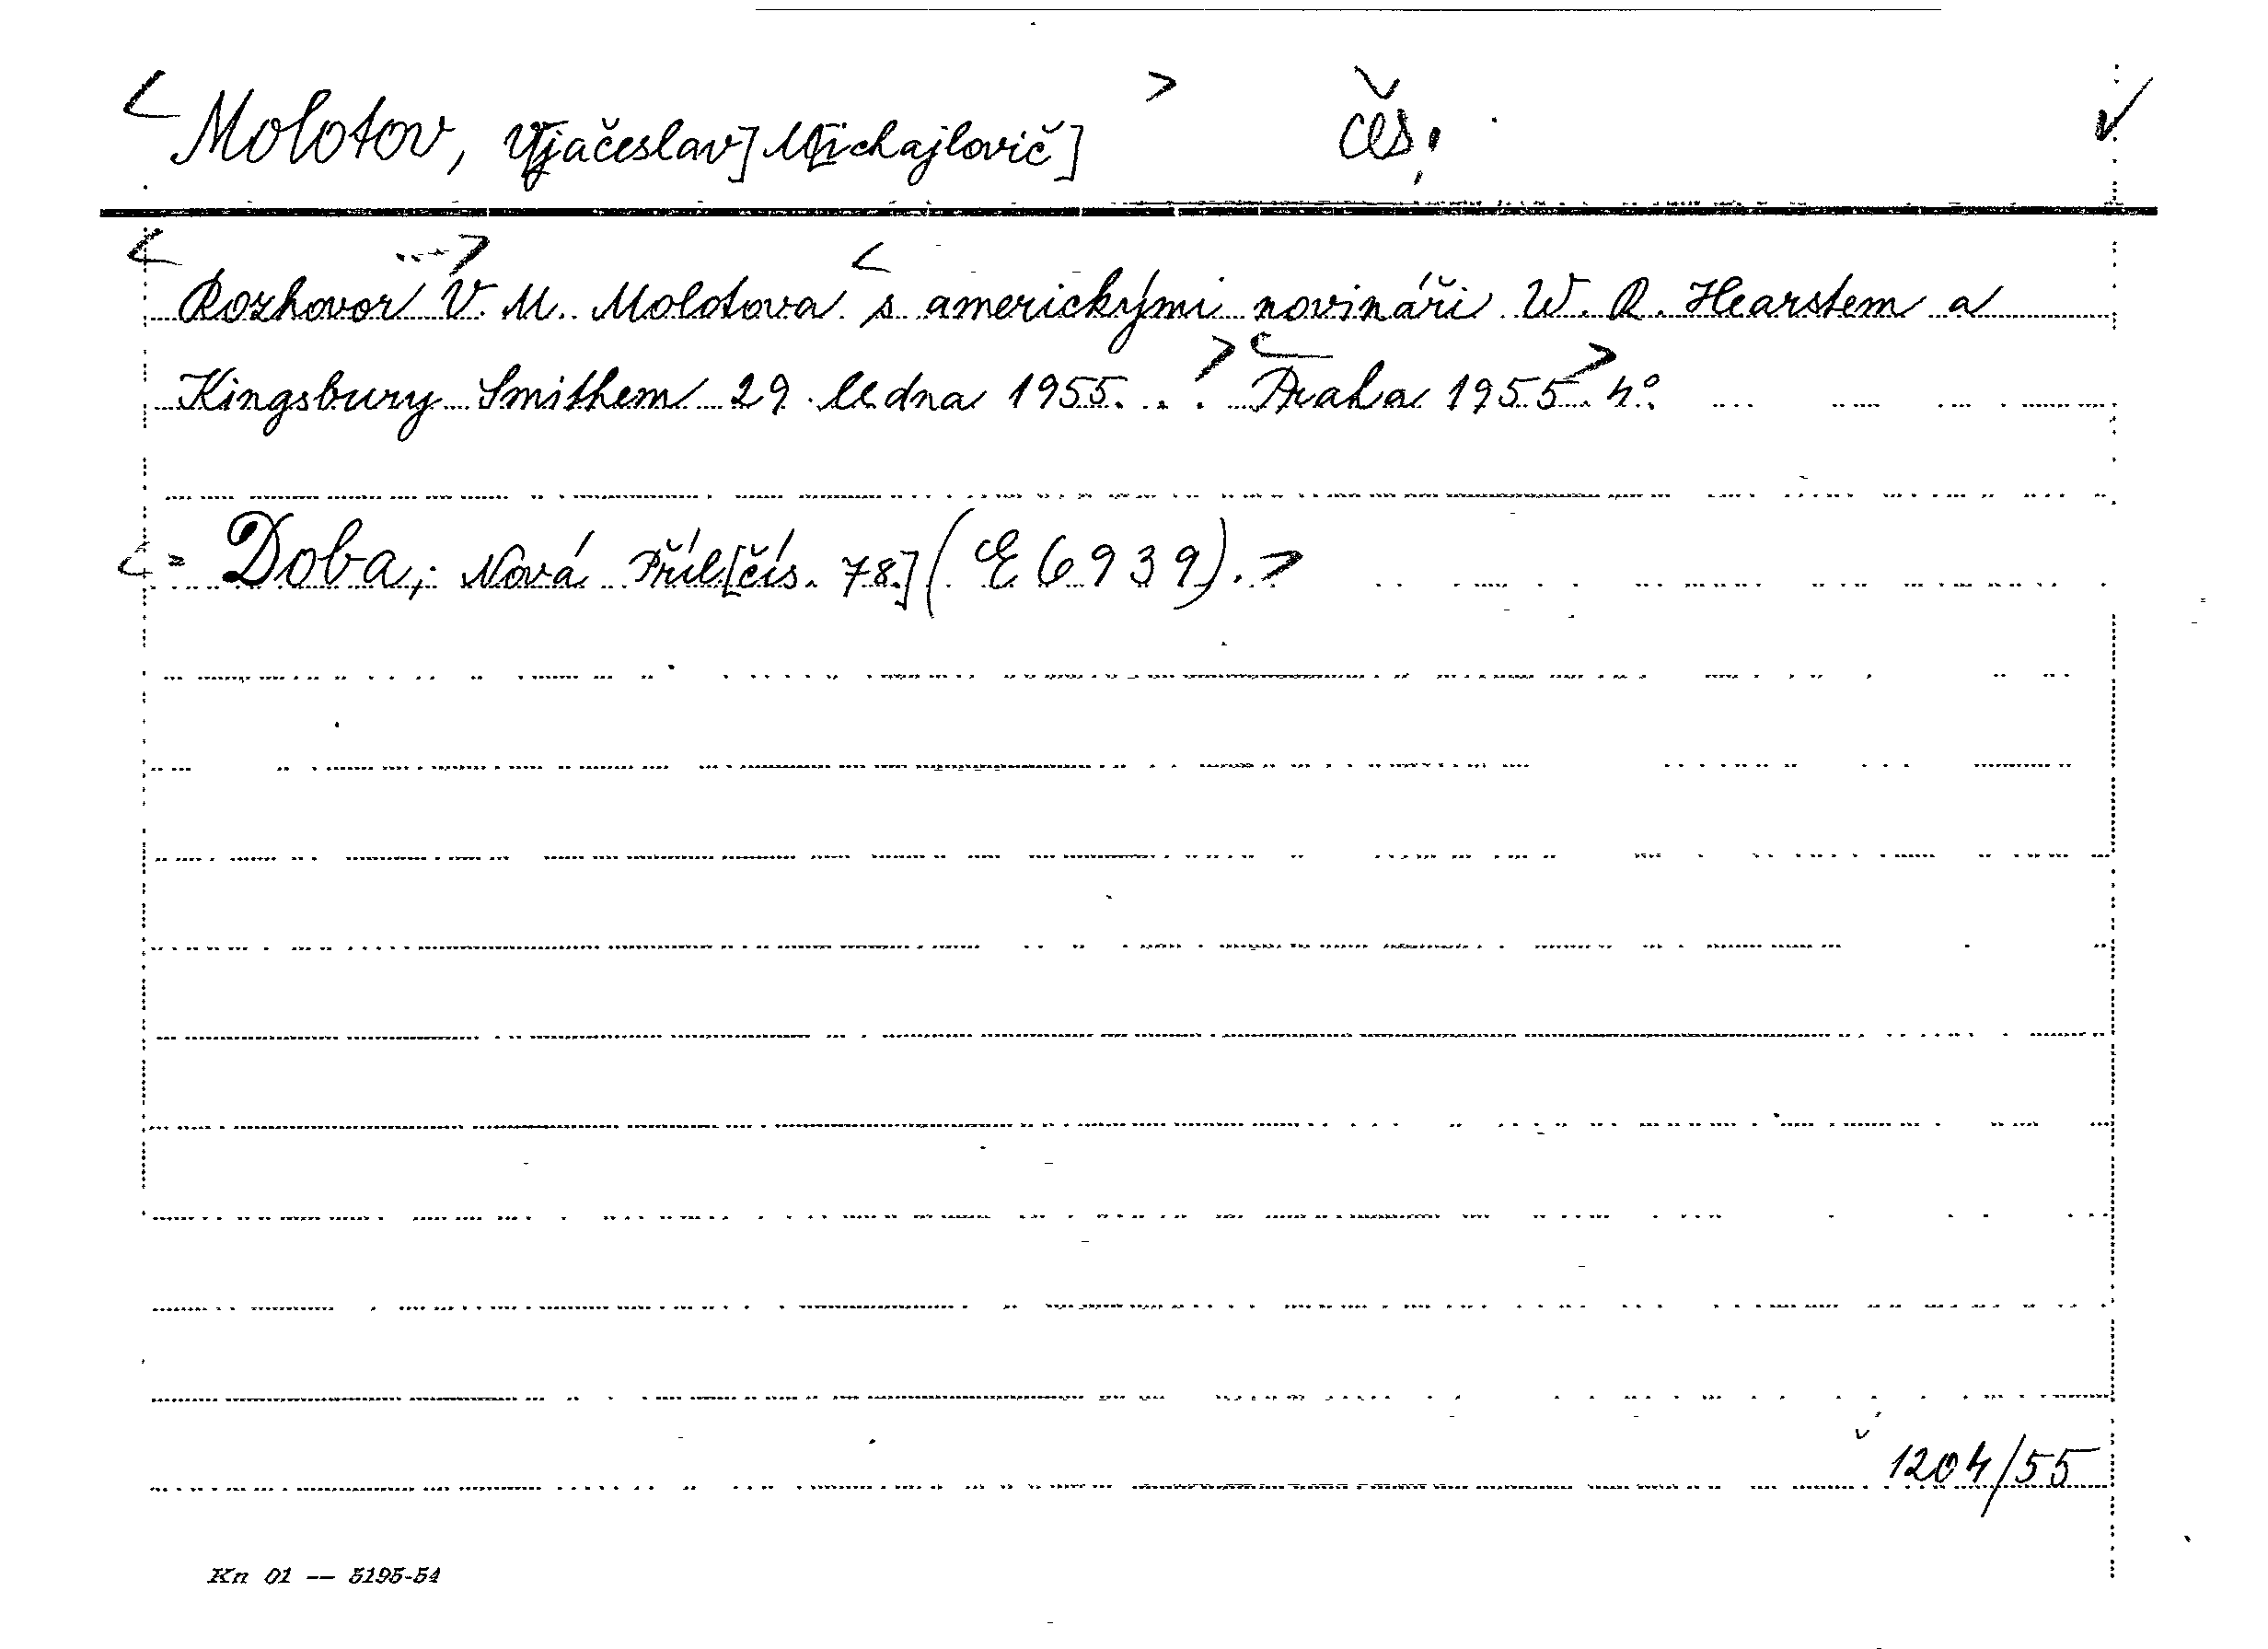 < Molotov, V[jačeslav] M[ichajlovič] > čes. ✓
< Rozhovor ...> V. M. Molotova < s americkými novináři W. R. Hearstem a
Kingsbury Smithem 29. ledna 1955. . . > < Praha 1955 > 4°.
< = Doba, Nová Příl[čís. 78.] (E 6939). >
1204/55
Kn 01 — 5195-54